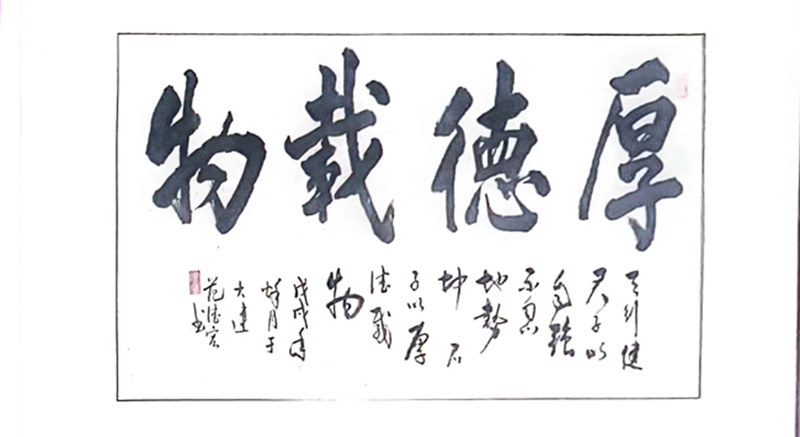 厚德载物
天行健
君子以
自强
不息
地势
坤 君
子以厚
德载
物
戊戌年
月于
大连
范德宏
书